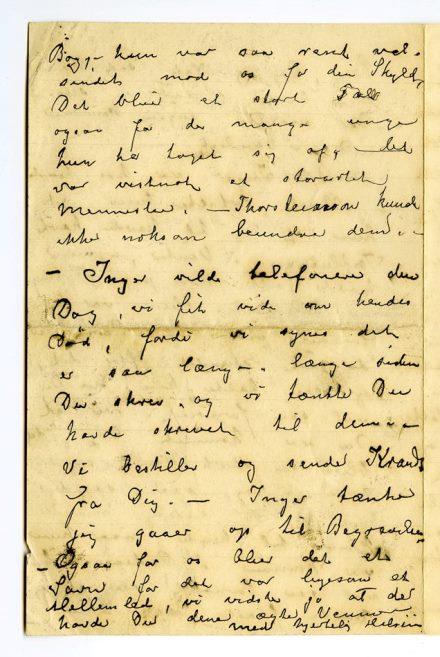 Bogø – hun var saa rent vel-
sindet mod os for din Skyld,
Det bliver et stort Tab
ogsaa for de mange unge
hun har taget sig af, – det
var vistnok et storartet
Menneske. – Thorsteinsson kunde
ikke noksom beundre dem. –
– Inger vilde telefonere den
Dag, vi fik vide om hendes
Død, fordi vi synes det
er saa længe – længe siden
Du skrev, og vi tænkte Du
havde skrevet til dem. –
Vi bestiller og sender Krands
fra Dig. – Inger tænker
jeg gaaer op til Begravelsen
– Ogsaa for os blir det et
Savn for det var ligesom et
Mellemled, vi vidste jo at der
havde Du dine ægte Venner
med hjertelig Hilsen